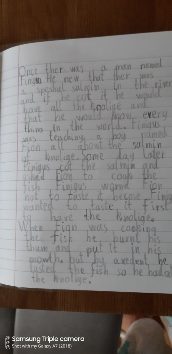 Once ther was a man named
Finous. He new that ther was
a speshal salmon in the river
and if he cot it he would
have all the knolige and
that he would know every
thing in the world. Finous
was teaching a boy named
Fion all about the salmon
of knolige. Some day later
Finous cot the salmon and
asked Fion to cook the
fish Finous warned Fion
not to taste it becose Finous
wanted to taste it first
to have the knolige.
When Fion was cooking
the fish he burnt his
thum and put it in his
mouth but by axedent he
tasted the fish so he had all
the knolige.
Shot with my Galaxy A7 (2018)